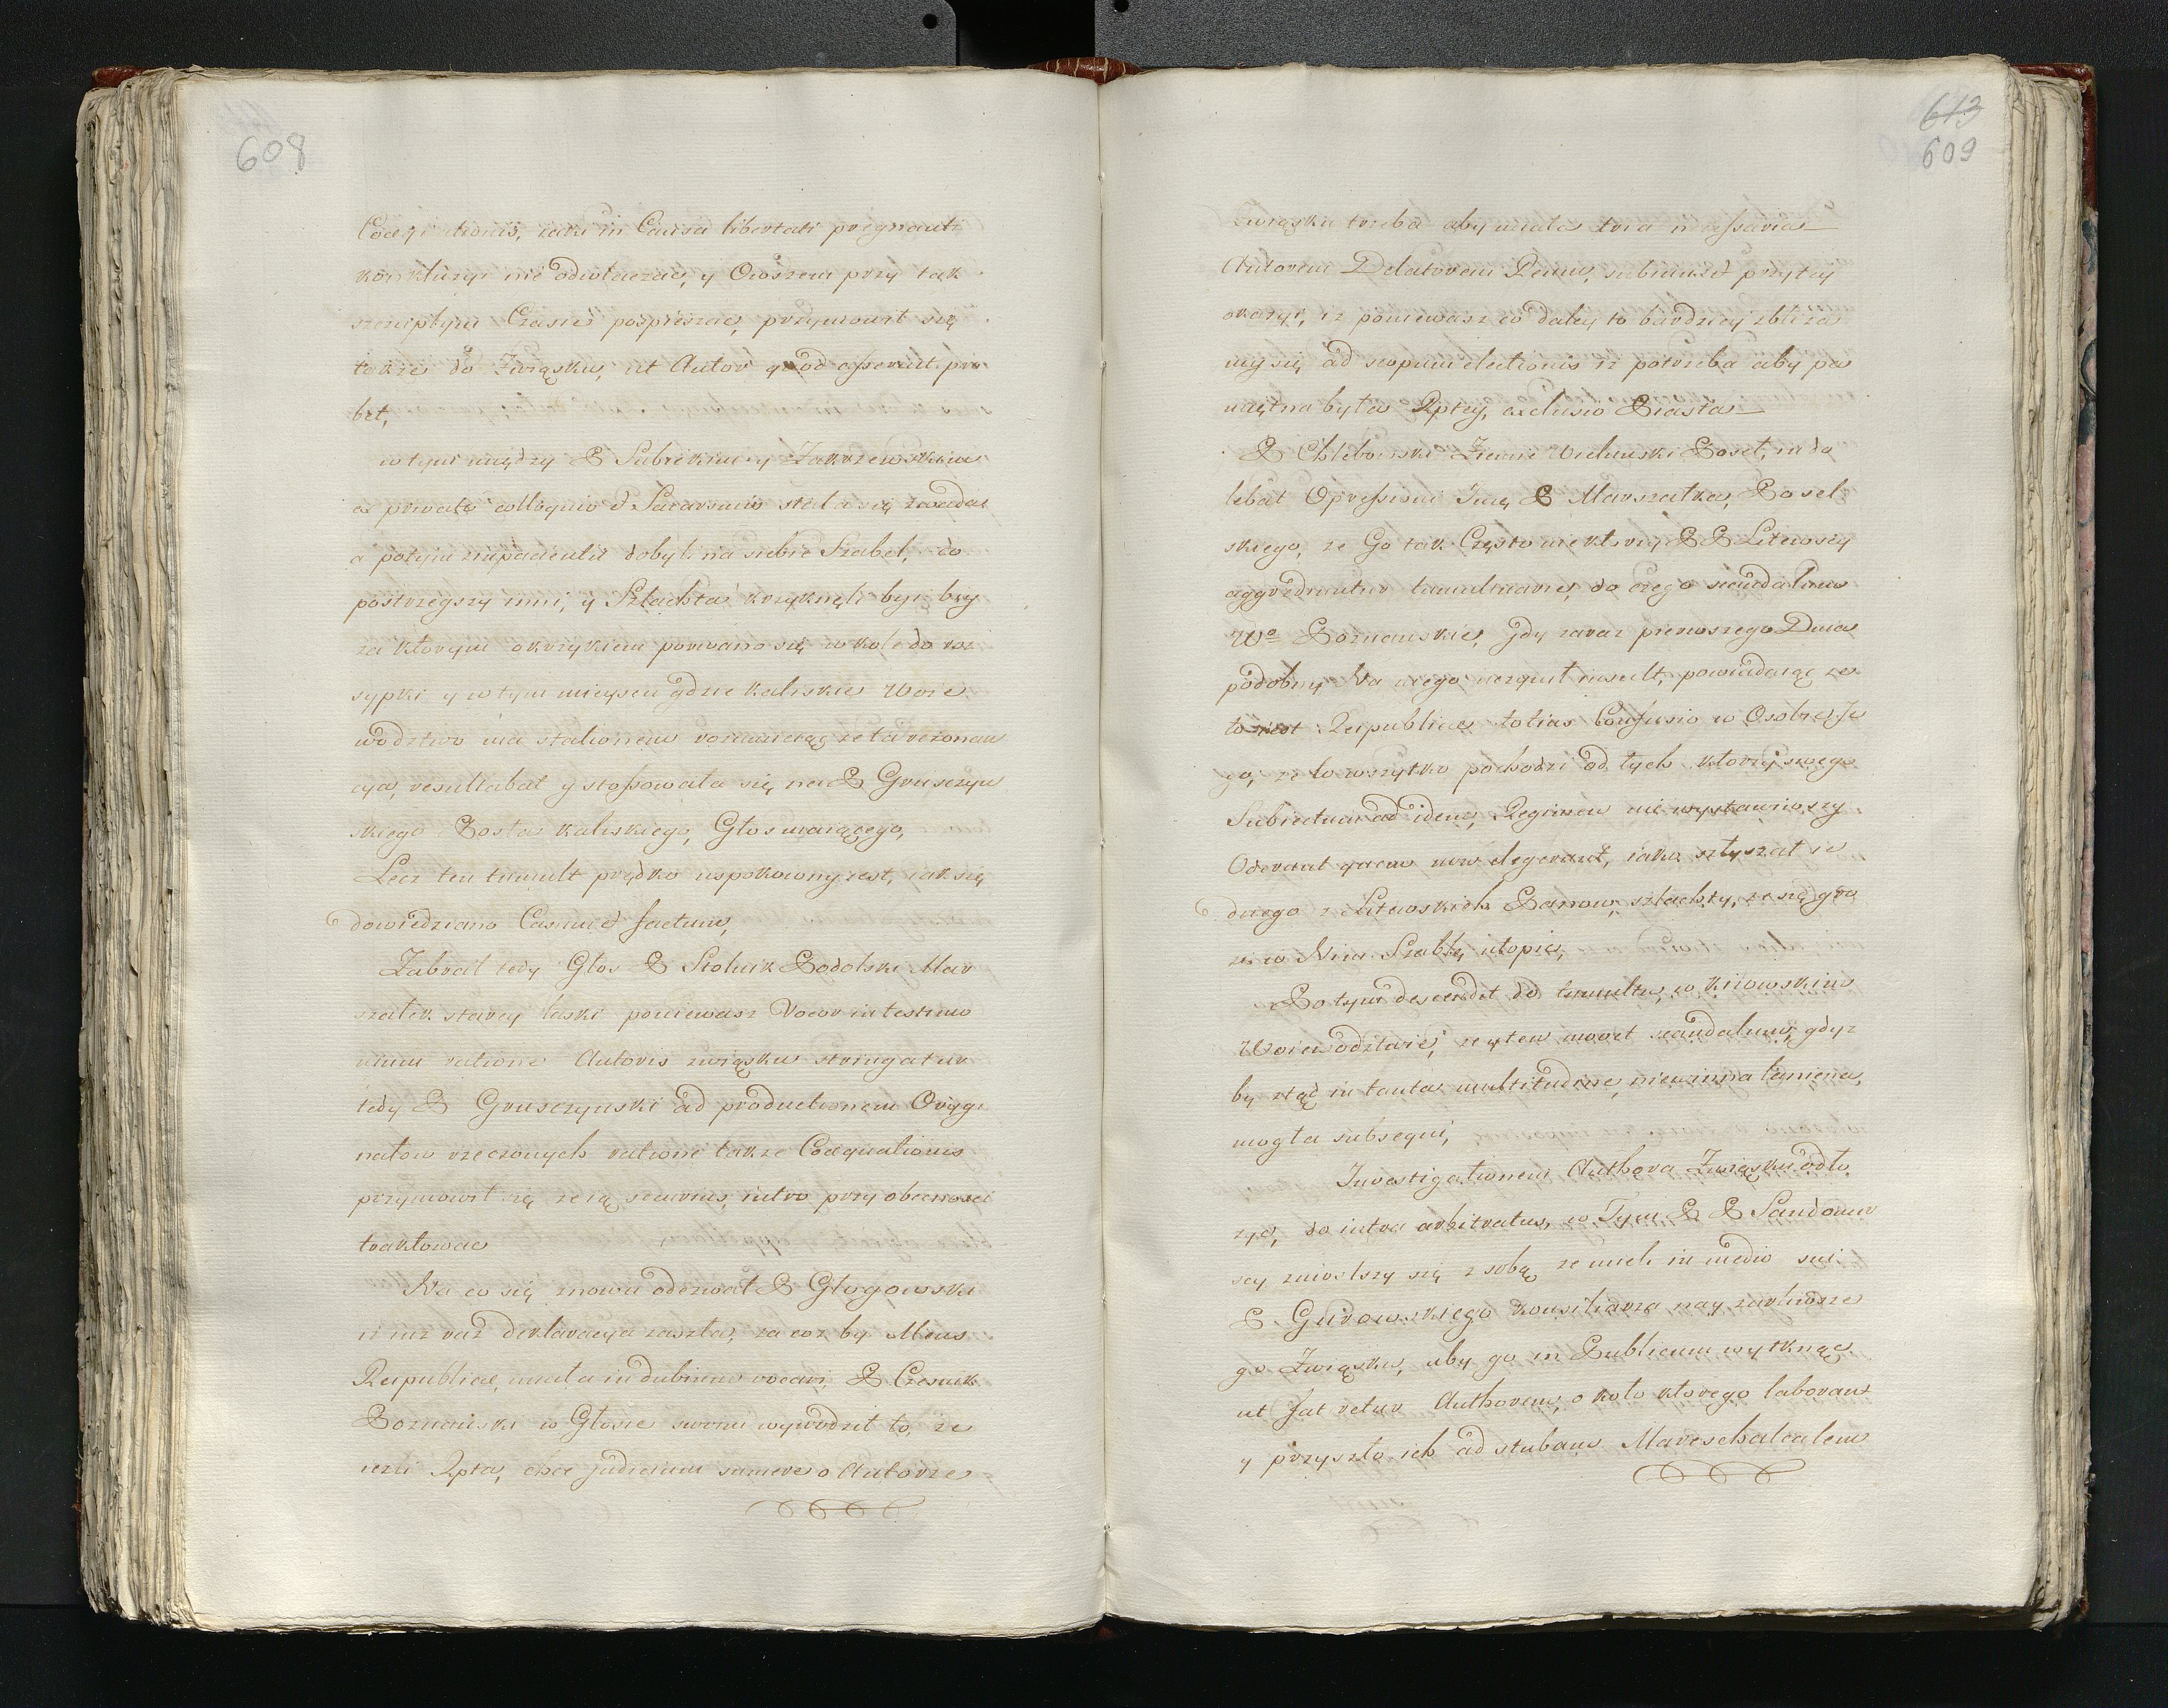 608
Coaequationis, iako in Causa libertati pregnanti
konkluzyi nie odwłaczać, y Owoszem przy tak
szczupłym Czasie pospieszać, przymowił się
także do Związku, ut Autor quod asseruit pro
bet,
w tym między P Subickim y Zakrzewskim
ex privato colloquio et Sacarsmis stała się zwada
a potym impacientiu dobyli na siebie Szabel, co
postrzegszy inni, y Szlachta krzyknęli byi biy
za ktorym okrzykiem porwano się w kole do roz
sypki y w tym mieyscu gdzie kaliskie Woie
wodztwo ma stationem rozumieiąc że ta rezonan
cya, resultabat y stossowała się na P Gruszczyn
skiego Posła kaliskiego, Głos maiącego,
Lecz ten tumult prędko uspokoiony iest, iak się
dowiedziano Casu id factum,
Zabrał tedy Głos P Stolnik Podolski Mar
szałek starey laski poniewasz Vocor in testimo
nium ratione Autoris związku stringatur
tedy P Gruszczynski ad productionem Orygi
nałow rzeczonych ratione także Coaequationis
przymowił się że ią securius iutro przy obecnosci
traktować
Na co się znowu odezwał P Głogowski
iż iuż raz deklaracya zaszła, za coz by Mens
Reipublicae, miała in dubium vocari, P Czesnik
Poznański w Głosie swoim wywodził to, że
iezli Rpta, chce judicium sumere o Autorze
613
609
Związku trzeba aby miała tria necessaria
Autorem Delatorem Reum, subiunxit przytey
okazyi, iż poniewasz co daley to bardziey zbliża
my się ad scopum electionis iż potrzeba aby pa
miętna była Rptey, exclusio Piasta
P Chlebowski Ziemie Wieluński Poseł, indo
lebat Opressioni Jmę P Marszałka, Posel
skiego, że Go tak Często niektorzy P P Litewscy
aggrediuntur tumultuarie, do czego scandalum
Wo Poznanskie, gdy zaraz pierwszego Dnia
podobny Na niego uczynił insult, powiadaiąc że
to iest Reipublicae totias Confusio w Osobie Je
go, że to wszytko pochodzi od tych ktorzy swego
Subiectum ad idem Regimen nie wystawiwszy
Oderunt quem non elegerunt, iako słyszał ie
dnego z Litewskich Panow, szlachty, że się gro
zi w Nim Szablę utopić,
Potym descendit do tumultu, w kiiowskim
Woiewodztwie, że y ten movet scandalum, gdyz
by stąd in tanta multitudine, niewinna łaniena,
mogła subsequi,
Investigationem Authora Związku odło
zyć, do iutra arbitratus, w Tym P P Sandomir
scy zniosłszy się z sobą, ze mieli in medio sui
P. Gurowskiego konsiliarza nay zurliwsze
go Związku, aby go in Publicum wytknąć
ut fatretur Authorem, około ktorego laboran
y przyszło ich ad stubam Mareschalcalem